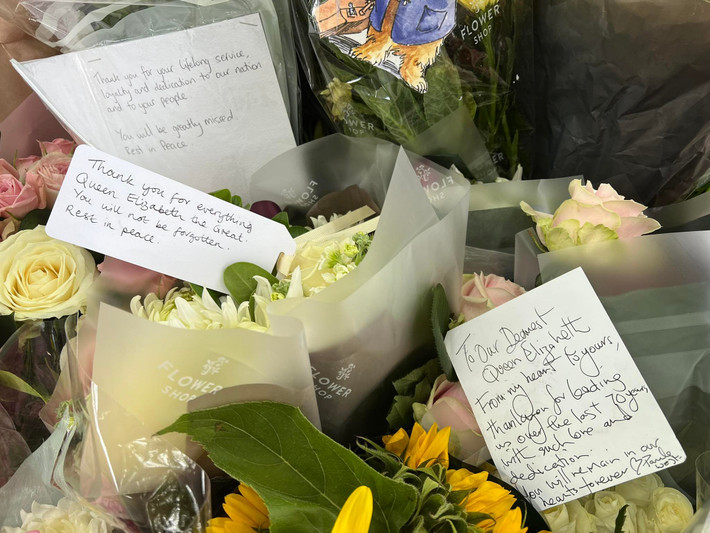 Thank you for your lifelong service,
loyalty and dedication to our nation
and to your people
You will be greatly missed.
Rest in Peace
Thank you for everything
Queen Elizabeth the Great.
You will not be forgotten.
Rest in peace.
To Our Dearest
Queen Elizabeth
From my heart to yours,
thank you for leading
us over the last 70 years
with such love and
dedication.
You will remain in our
hearts forever
FLOWER
SHOP
FLOWER
SHOP
FLOWER
SHOP
FLOWER
SHOP
FLOWER
SHOP